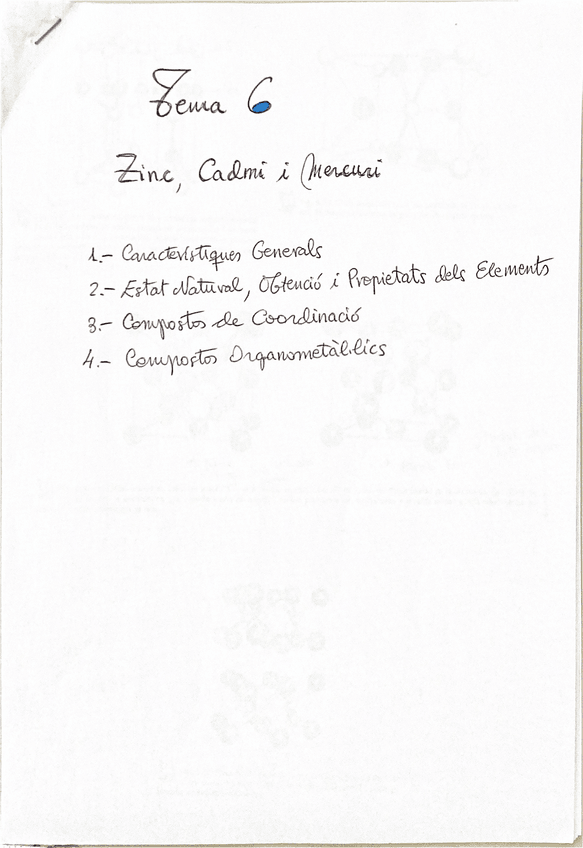 Tema 6
Zinc, Cadmi i Mercuri
1.- Característiques Generals
2.- Estat Natural, Obtenció i Propietats dels Elements
3.- Compostos de Coordinació
4.- Compostos Organometàl·lics